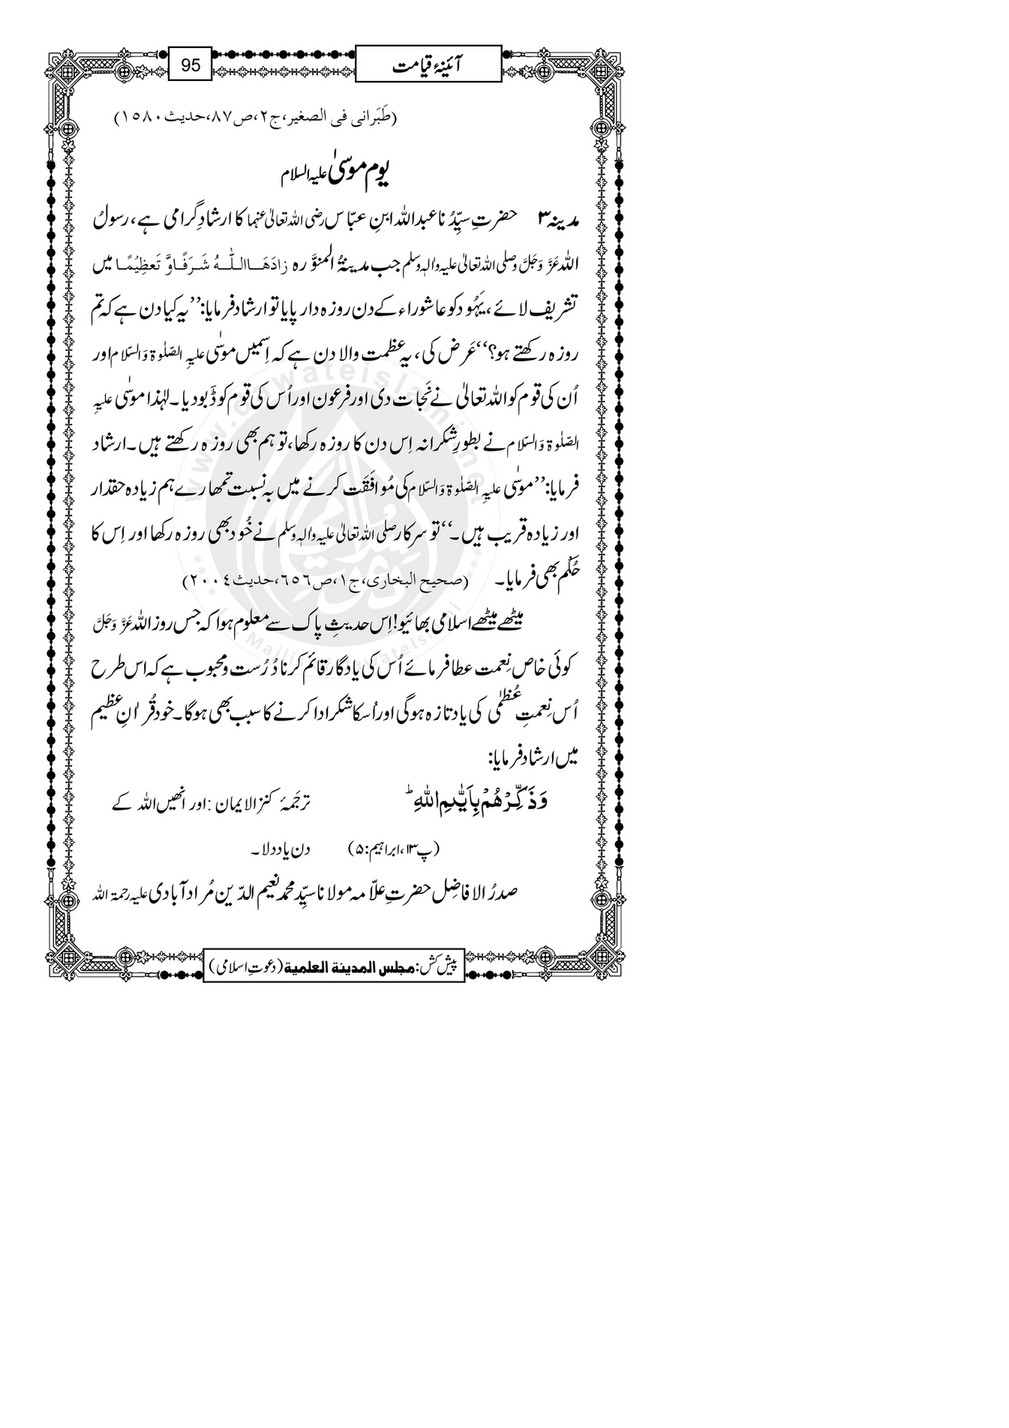 آئینۂ قیامت
95
(طَبَرانی فی الصغیر،ج۲،ص۸۷،حدیث۱۵۸۰)
یومِ موسیٰ علیہ السلام
مدینہ۳ حضرتِ سیِّدُ نا عبداللہ ابنِ عبّاس رضی اللہ تعالیٰ عنہما کا ارشادِ گِرامی ہے، رسولُ
اللہ عَزَّ وَجَلَّ وصلی اللہ تعالیٰ علیہ واٰلہٖ وسلم جب مدینۃُ المنوَّرہ زَادَهَـااللّٰـهُ شَـرَفًـاوَّ تَعظِيْمًـا میں
تشریف لائے، یَہُود کو عاشوراء کے دن روزہ دار پایا تو ارشاد فرمایا:’’یہ کیا دن ہے کہ تم
روزہ رکھتے ہو؟‘‘عَرض کی، یہ عظمت والا دن ہے کہ اِسمیں موسٰی علیہِ الصّلٰوۃ وَالسّلام اور
اُن کی قوم کو اللہ تعالیٰ نے نَجَات دی اور فرعون اور اُس کی قوم کو ڈَبو دیا۔ لہٰذا موسٰی علیہِ
الصّلٰوۃ وَالسّلام نے بطورِ شکرانہ اِس دن کا روزہ رکھا، تو ہم بھی روزہ رکھتے ہیں۔ ارشاد
فرمایا:’’موسٰی علیہِ الصّلٰوۃ وَالسّلام کی مُوافَقَت کرنے میں بہ نسبت تمھارے ہم زیادہ حقدار
اور زیادہ قریب ہیں۔‘‘تو سرکار صلی اللہ تعالیٰ علیہ واٰلہٖ وسلم نے خُود بھی روزہ رکھا اور اِس کا
حُکْم بھی فرمایا۔ (صحیح البخاری،ج۱،ص۶۵۶،حدیث۲۰۰۴)
میٹھے میٹھے اسلامی بھائیو! اِس حدیثِ پاک سے معلوم ہوا کہ جس روز اللہ عَزَّ وَجَلَّ
کوئی خاص نِعمت عطا فرمائے اُس کی یادگار قائم کرنا دُرُست و محبوب ہے کہ اس طرح
اُس نِعمتِ عُظمٰی کی یاد تازہ ہوگی اور اُسکا شکر ادا کرنے کا سبب بھی ہوگا۔ خود قُراٰنِ عظیم
میں ارشاد فرمایا:
وَذَكِّرْهُمْ بِاَيّٰىمِ اللّٰهِ ؕ ترجَمۂ کنز الایمان :اور انھیں اللہ کے
(پ۱۳،ابراہیم:۵) دن یاد دلا۔
صدرُ الافاضِل حضرتِ علّامہ مولانا سیِّد محمد نعیم الدّین مُراد آبادی علیہ رحمۃ اللہ
پیش کش: مجلس المدينة العلمية (دعوتِ اسلامی)